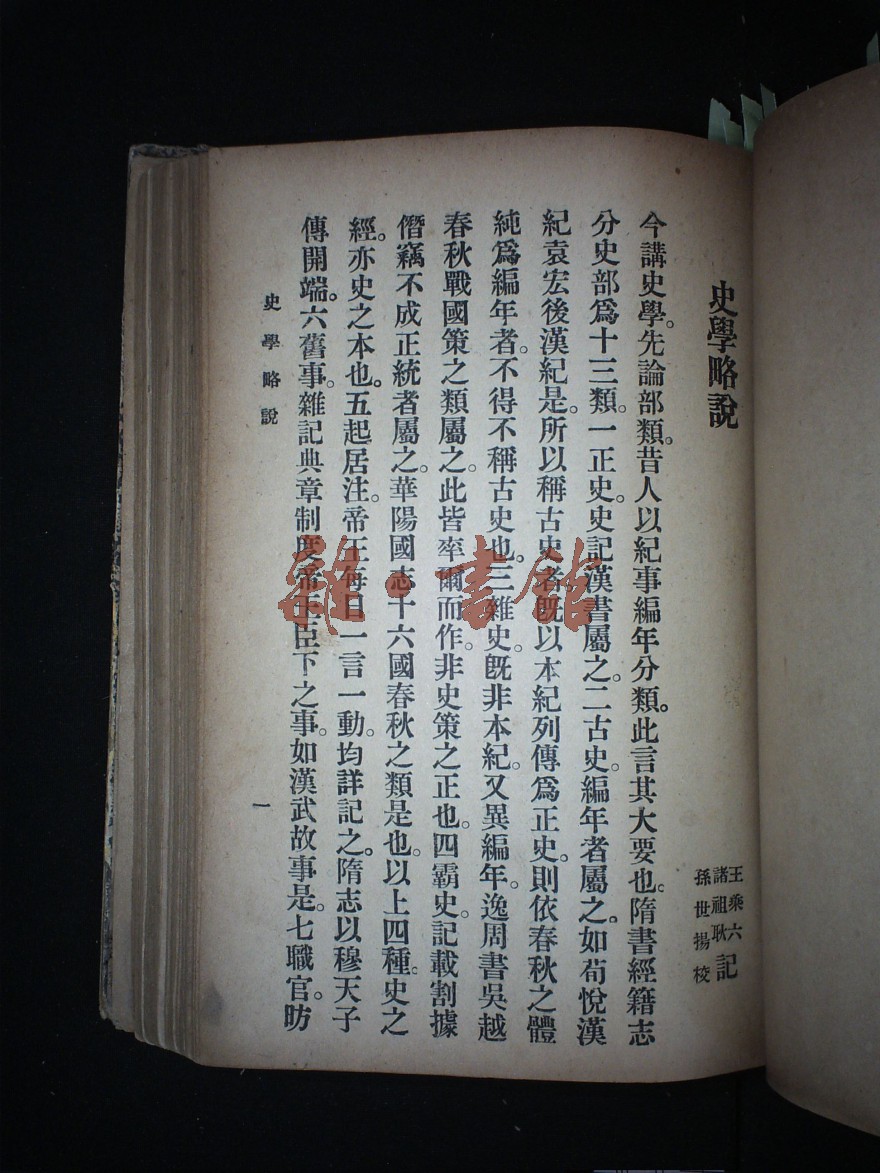 史學略說
王乘六
諸祖耿 記
孫世揚 校
今講史學。先論部類。昔人以紀事編年分類。此言其大要也。隋書經籍志
分史部爲十三類。一正史。史記漢書屬之。二古史。編年者屬之。如荀悅漢
紀袁宏後漢紀是。所以稱古史者。旣以本紀列傳爲正史。則依春秋之體
純爲編年者。不得不稱古史也。三雜史。旣非本紀。又異編年。逸周書吳越
春秋戰國策之類屬之。此皆率爾而作。非史策之正也。四霸史。記載割據
僭竊不成正統者屬之。華陽國志十六國春秋之類是也。以上四種。史之
經。亦史之本也。五起居注。帝王每日一言一動。均詳記之。隋志以穆天子
傳開端。六舊事。雜記典章制度帝王臣下之事。如漢武故事是。七職官。昉
史學略說
一
雜·書館